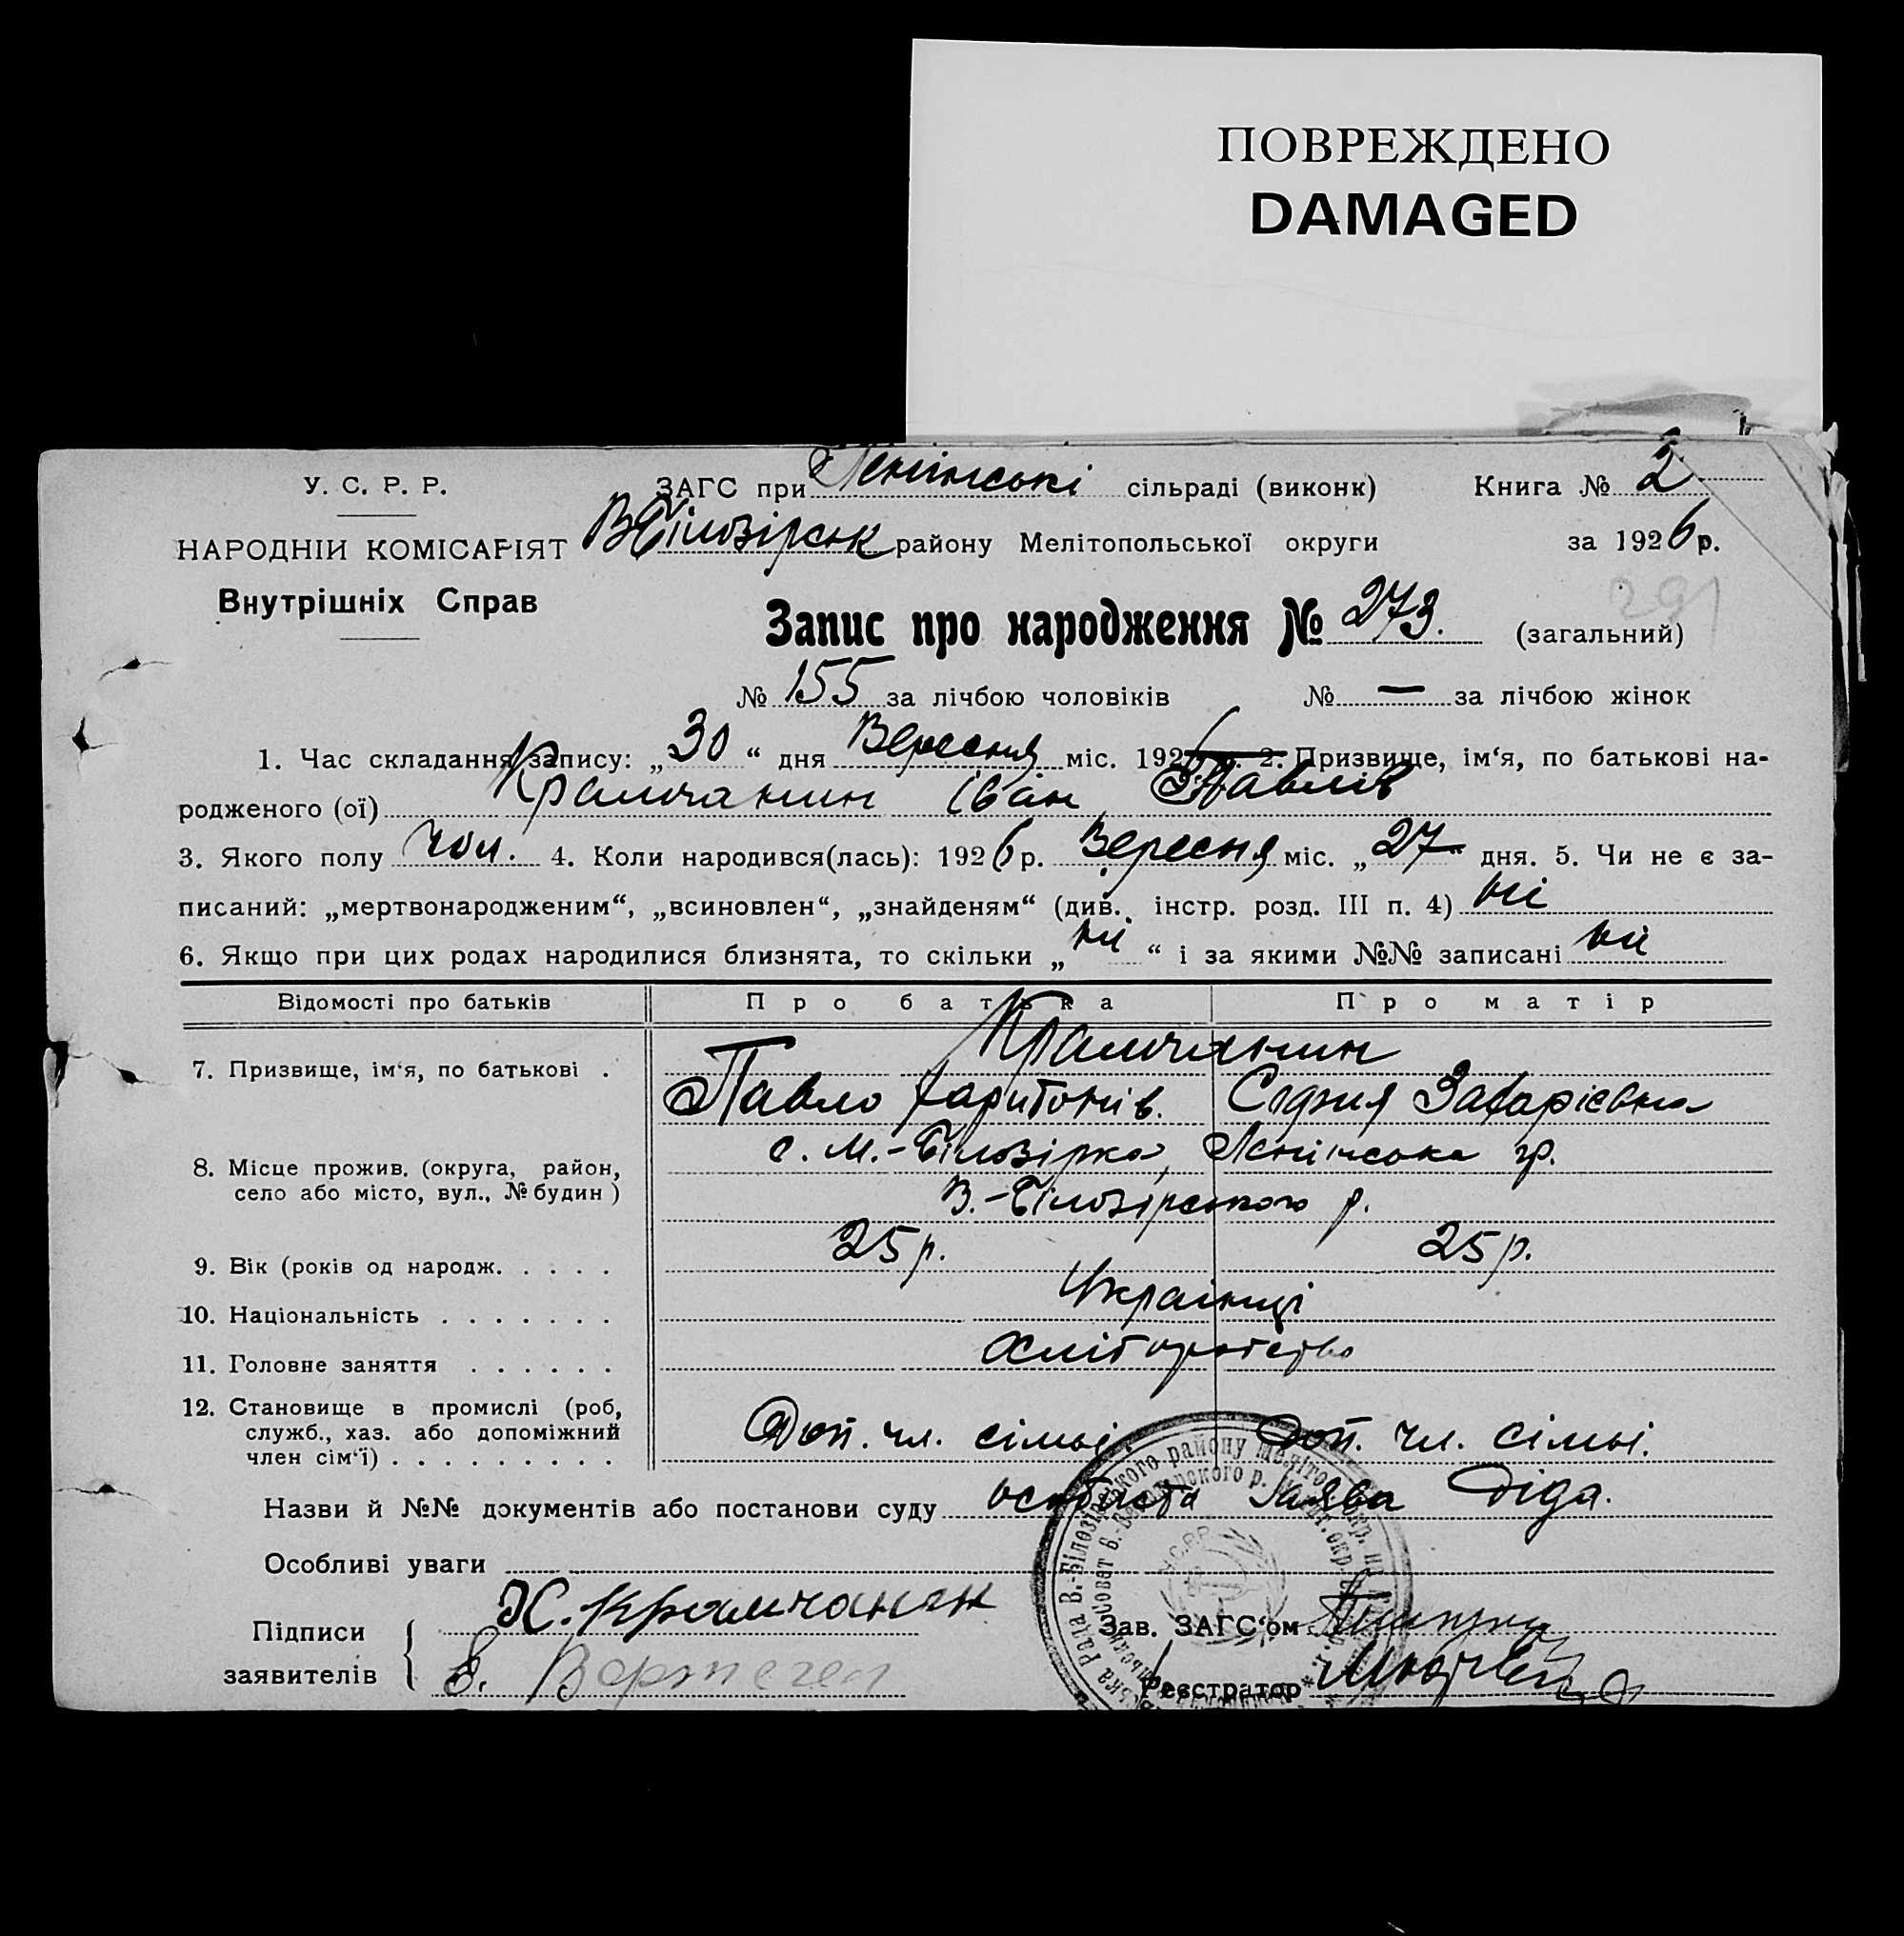 ПОВРЕЖДЕНО
DAMAGED
У. С. Р. Р.
ЗАГС при Ленінські сільраді (виконк) Книга № 2
НАРОДНІЙ КОМІСАРІЯТ
В Білозірськ району Мелітопольської округи за 1926 р.
Внутрішніх Справ
291
Запис про народження № 273. (загальний)
№ 155 за лічбою чоловіків № — за лічбою жінок
1. Час складання запису: „30“ дня Вересня міс. 1926 р. 2. Призвище, ім‘я, по батькові на-
родженого (ої) Крамчанин Іван Павлів
3. Якого полу чол. 4. Коли народився(лась): 1926 р. Вересня міс. „27“ дня. 5. Чи не є за-
писаний: „мертвонародженим“, „всиновлен“, „знайденям“ (див. інстр. розд. III п. 4) ні
6. Якщо при цих родах народилися близнята, то скільки „ні“ і за якими №№ записані ні
Відомості про батьків Про батька Про матір
Крамчанин
7. Призвище, ім‘я, по батькові .
Павло Харитонів. София Захарієвна
с. М.-Білозірка, Ленінська гр.
8. Місце прожив. (округа, район,
село або місто, вул., № будин)
В.-Білозірського р.
9. Вік (років од народж. . . . . 25 р. 25 р.
10. Національність . . . . . . . Українці
11. Головне заняття . . . . . . Хліборобство
12. Становище в промислі (роб,
служб., хаз. або допоміжний
член сім‘ї) . . . . . . . . . Доп. чл. сімьі. Доп. чл. сімьі.
Назви й №№ документів або постанови суду особиста заява діда.
Особливі уваги
Підписи
заявителів
Х. Крамчанин
Е. Вертегел
Зав. ЗАГС‘ом
Реєстратор